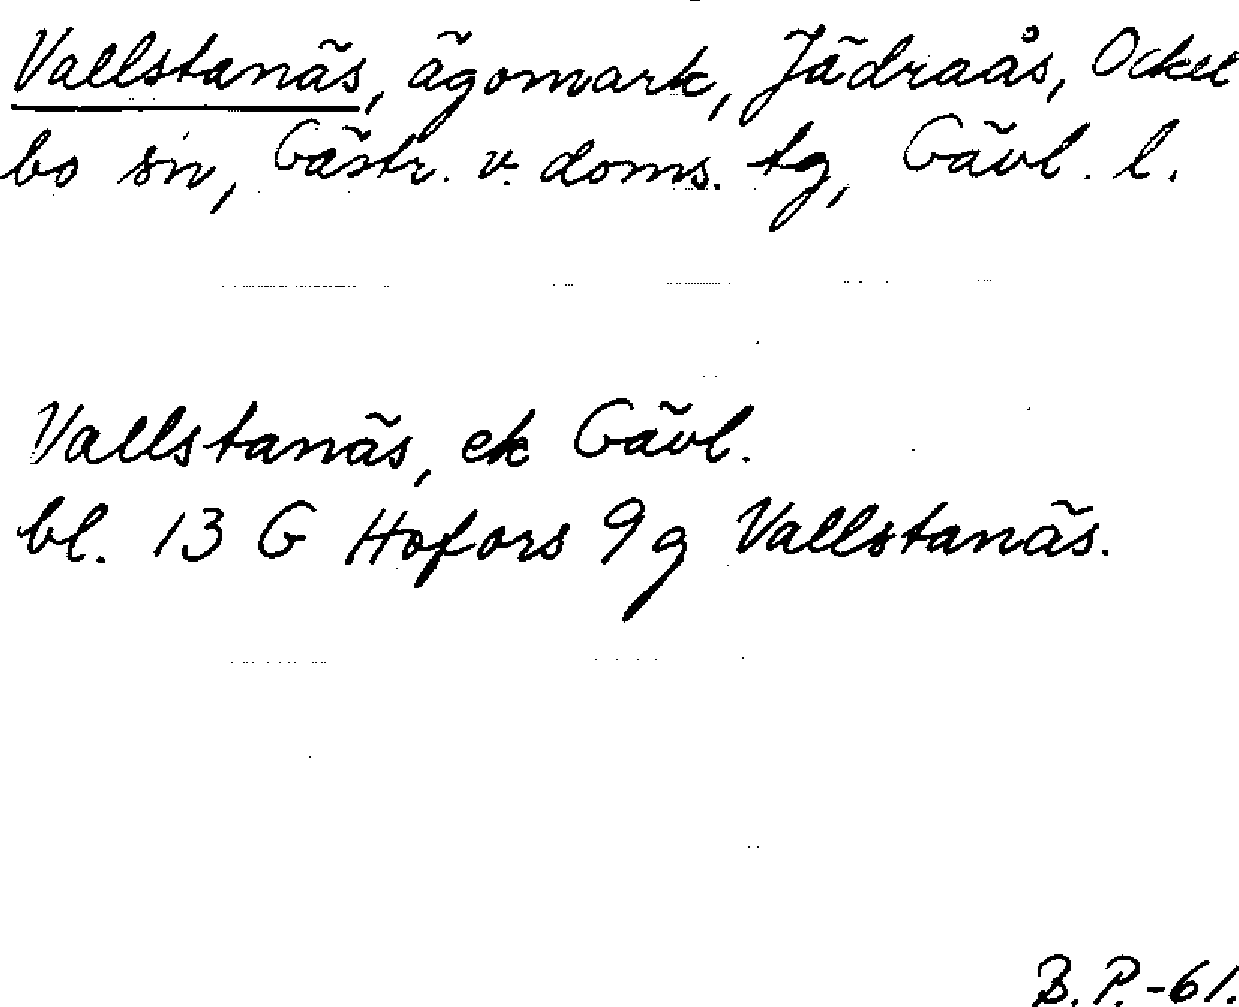 Vallstanäs, ägomark, Jädraås, Ockel
bo sn, Gästr. v. doms. tg, Gävl. l.
Vallstanäs, ek Gävl.
bl. 13 G Hofors 9 g Vallstanäs.
B. P. -61.